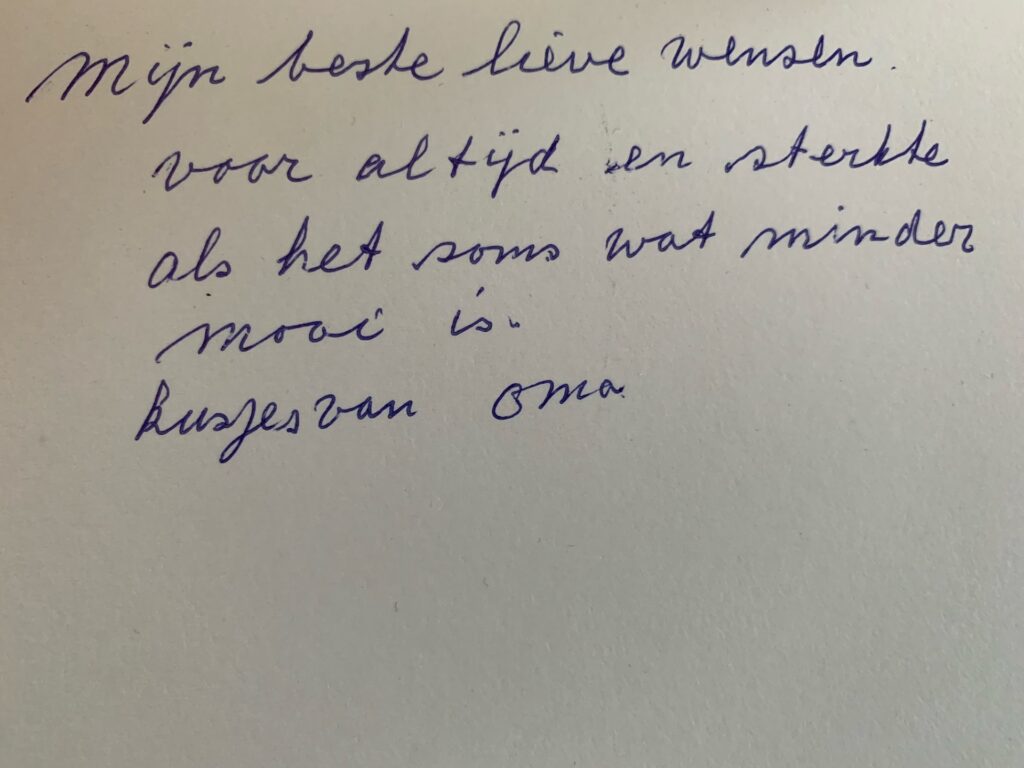 Mijn beste lieve wensen.
voor altijd en sterkte
als het soms wat minder
mooi is.
kusjes van oma